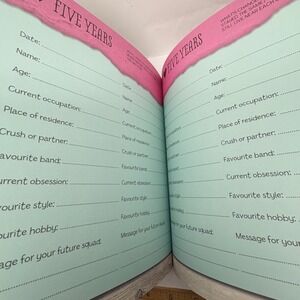 FIVE YEARS
Date:
Name:
Age:
Current occupation:
Place of residence:
Crush or partner:
Favourite band:
Current obsession:
Favourite style:
Favourite hobby:
Message for your future squad:
Date
Name
Age
Current occupation
Place of residence
Crush or partner
Favourite band
Current obsession
Favourite style:
Favourite hobby:
Message for your future
FIVE YEARS
Date:
Name:
Age:
Current occupation:
Place of residence:
Crush or partner:
Favourite band:
Current obsession:
Favourite style:
Favourite hobby:
Message for your